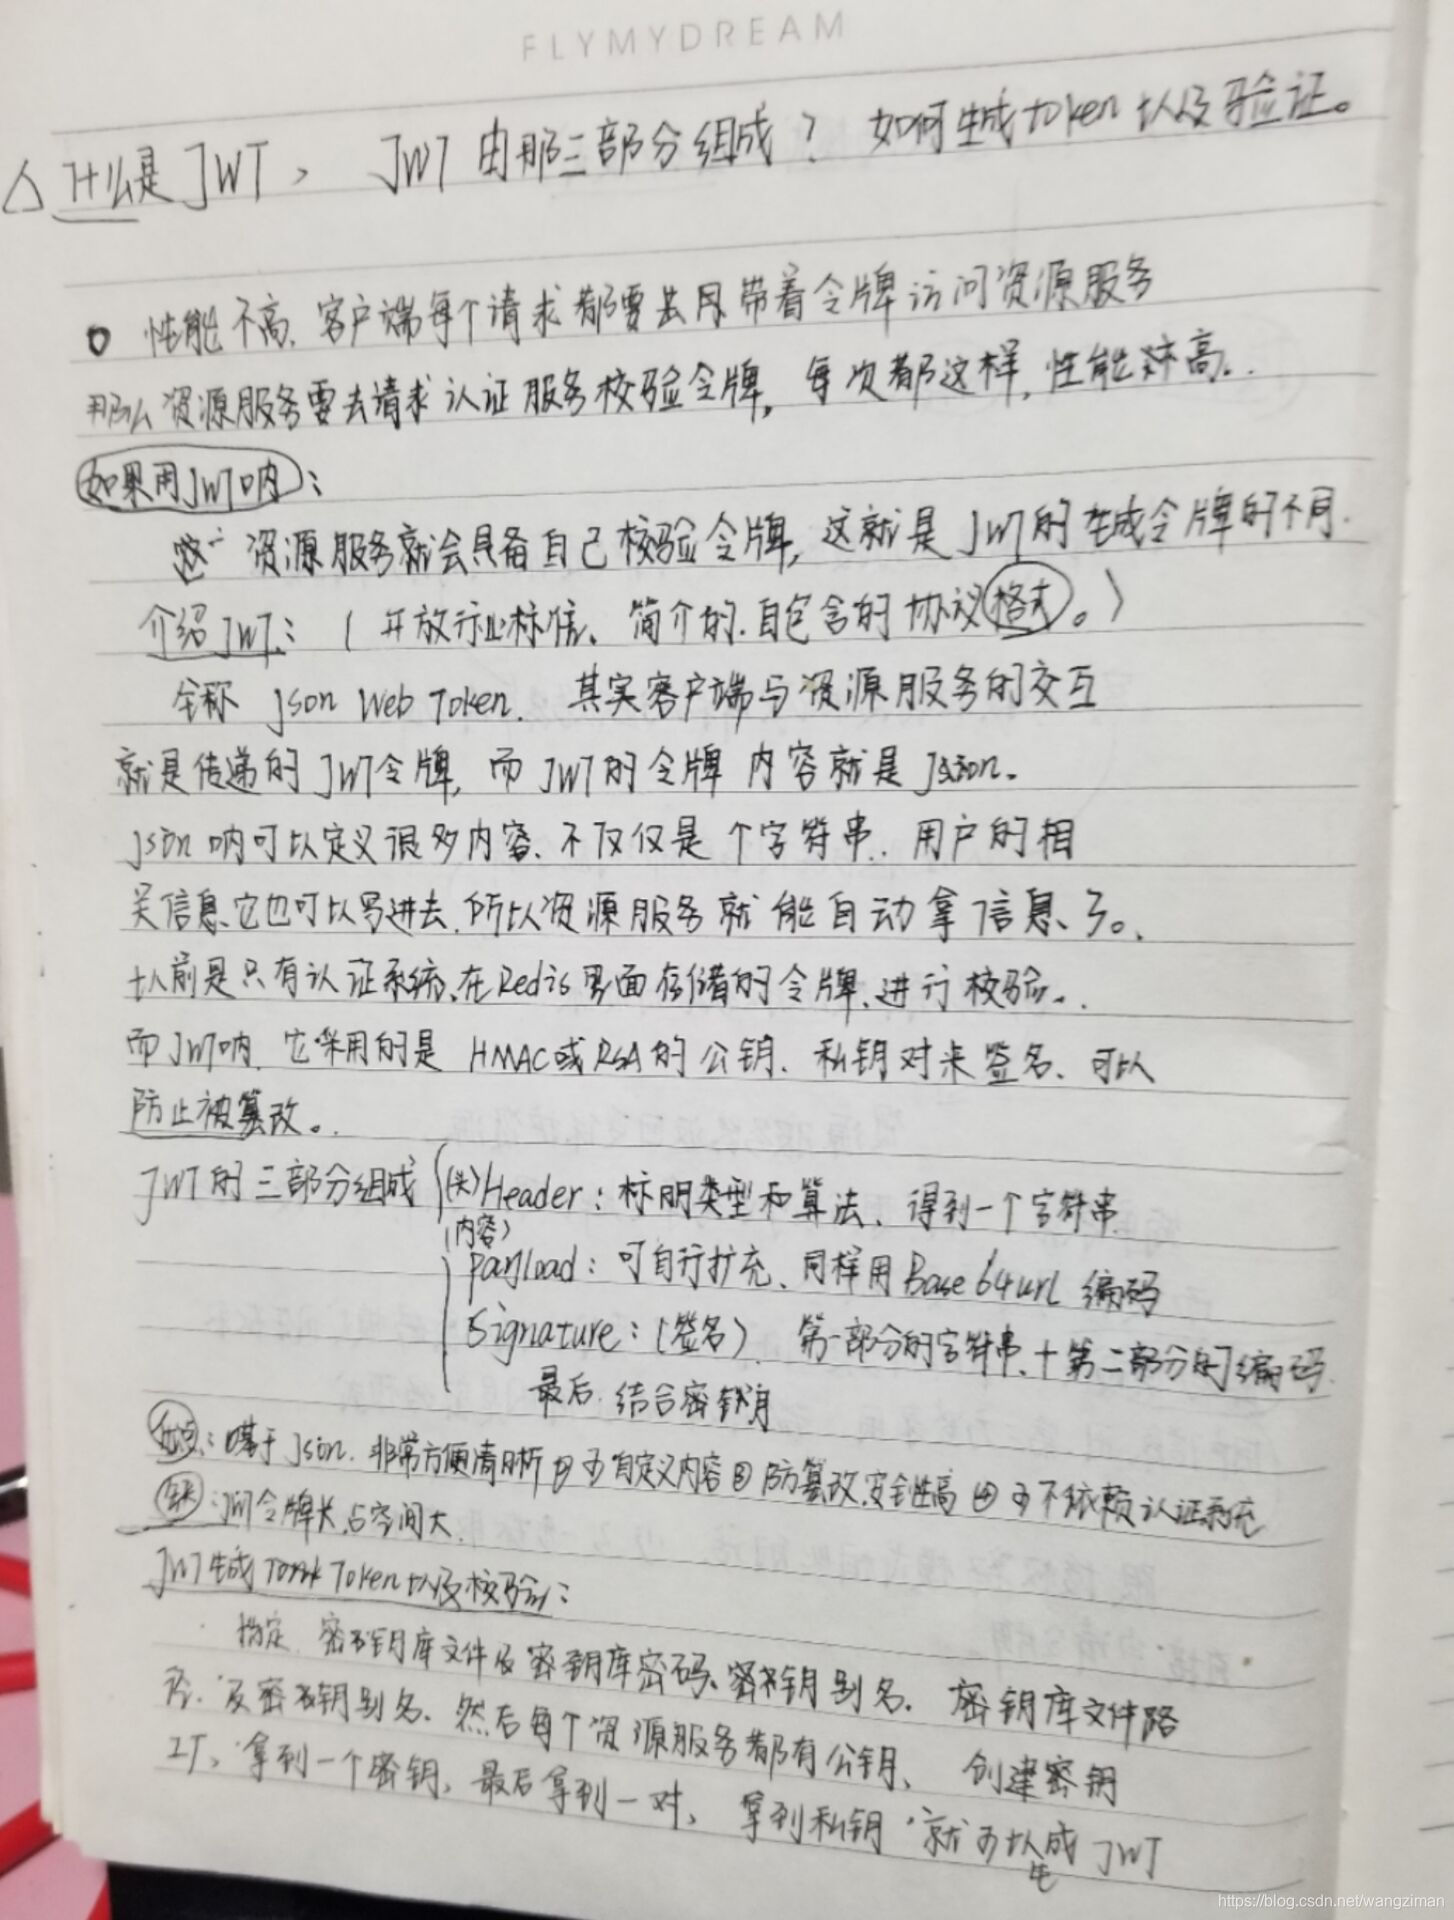 FLYMYDREAM
△ 什么是JWT, JWT由那三部分组成? 如何生成token以及验证。
性能不高. 客户端每个请求都要去 带着令牌访问资源服务
那么资源服务要去请求认证服务校验令牌, 每次都这样, 性能 高..
如果用JWT呐:
资源服务就会具备自己校验令牌, 这就是JWT的生成令牌的不同.
介绍JWT: ( 开放行业标准、简介的.自包含的协议格式。)
全称 Json Web Token. 其实客户端与资源服务的交互
就是传递的JWT令牌, 而JWT的令牌 内容就是Json。
Json呐可以定义很多内容、不仅仅是个字符串. 用户的相
关信息、它也可以写进去.所以资源服务就能自动拿信息了。
以前是只有认证系统、在Redis里面存储的令牌.进行校验。
而JWT呐. 它采用的是 HMAC或RSA的公钥. 私钥对来签名、可以
防止被篡改。
JWT的三部分组成 (头)Header: 标明类型和算法、得到一个字符串
(内容)
payload: 可自行扩充、同样用Base64url 编码
Signature: (签名) 第一部分的字符串、+第二部分的编码
最后. 结合密钥
优点: 基于Json. 非常方便清晰 ② 可自定义内容 ③ 防篡改,安全性高 ④ 可不依赖认证系统
缺: 令牌长,占空间大.
JWT生成 Token以及校验:
指定. 密钥库文件及密钥库密码、密钥别名. 密钥库文件路
径. 及密钥别名. 然后每个资源服务都有公钥、 创建密钥
工厂、拿到一个密钥、最后拿到一对、 拿到私钥 就可以生成JWT
https://blog.csdn.net/wangziman